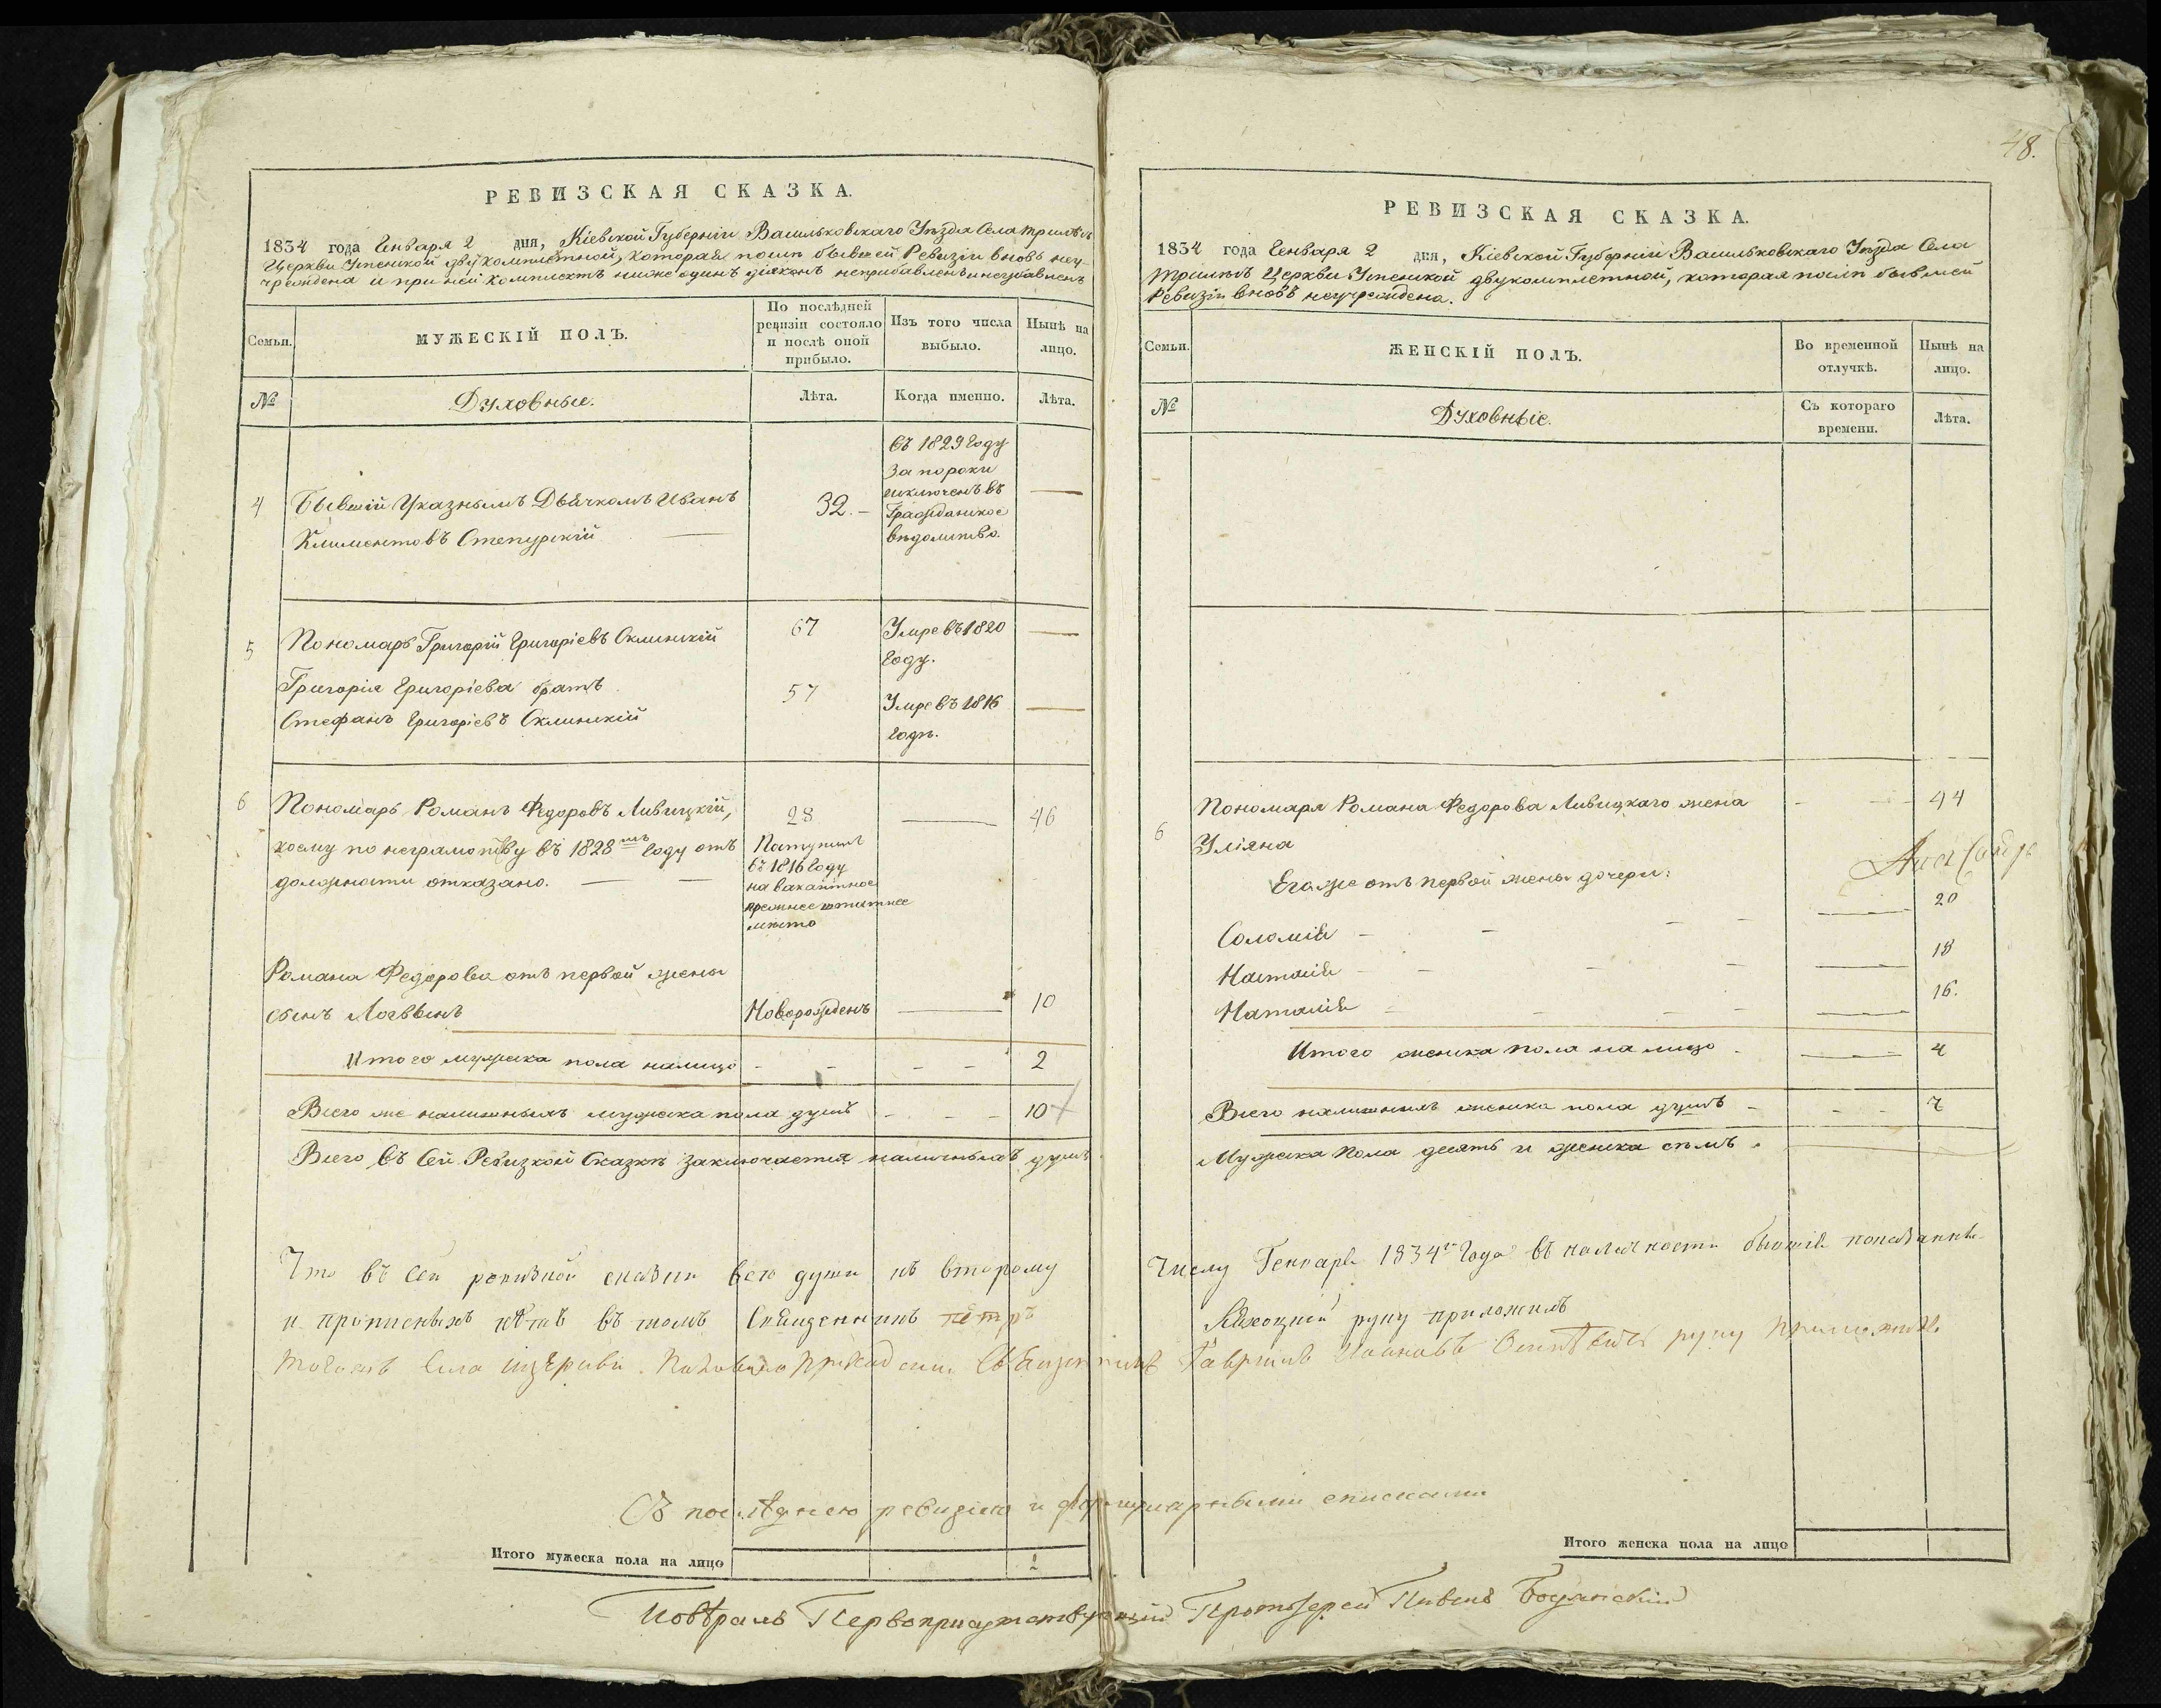 РЕВИЗСКАЯ СКАЗКА.
1834 года Генваря 2 дня, Кіевской Губерніи Васильковскаго Уѣзда Села Трилѣсъ
Церкви Успенской двукомплетной, которая послѣ бывшей Ревизіи вновь неу-
чреждена и при ней комплектъ ниже одинъ дьяконъ неприбавленъ и неубавленъ
Семьи.
МУЖЕСКІЙ ПОЛЪ.
По послѣдней ревизіи состояло и послѣ оной прибыло.
Изъ того числа выбыло.
Нынѣ на лицо.
№
Духовные.
Лѣта.
Когда именно.
Лѣта.
4 Бывшій Указнымъ Дьячкомъ Иванъ
Климентовъ Степурскій —
32. —
Въ 1829 Году
За пороки
исключенъ въ
Гражданское
вѣдомство.
—
5 Пономарь Григорій Григоріевъ Склинскій
67
Умре въ 1820
Году.
—
Григорія Григоріева братъ
Стефанъ Григоріевъ Склинскій
57
Умре въ 1816
Годѣ.
—
6 Пономарь Романъ Федоровъ Ливицкій,
коему по неграмотству въ 1828мъ Году отъ
должности отказано. — —
28
Поступилъ
въ 1816 Году
на вакантное
прежнее штатное
мѣсто
—
46
Романа Федорова отъ первой жены
сынъ Логвинъ
Новорожденъ
—
10
Итого мужеска пола налицо - - - - 2
Всего же наличныхъ мужеска пола душъ - - - 10
Всего въ Сей Ревизкой Сказкѣ заключается наличныхъ душъ
Что въ сей ревизкой сказки всѣ души къ второму
и прописныхъ нѣтъ въ томъ Священникъ Петръ
Тогожъ Села Церкви
Итого мужеска пола на лицо
2
48.
РЕВИЗСКАЯ СКАЗКА.
1834 года Генваря 2 дня, Кіевской Губерніи Васильковскаго Уѣзда Села
Трилѣсъ Церкви Успенской двукомплетной, которая послѣ бывшей
Ревизіи вновь неучреждена.
Семьи.
ЖЕНСКІЙ ПОЛЪ.
Во временной отлучкѣ.
Нынѣ на лицо.
№
Духовные.
Съ котораго времени.
Лѣта.
6 Пономаря Романа Федорова Ливицкаго жена
Уліяна
- — 44
Его же отъ первой жены дочери:
Соломія - - - - — 20
Настасія - - - - — 18
Наталія - - - - — 16.
Итого женска пола на лицо - — 4
Всего наличныхъ женска пола душъ - - - - 7
Мужеска пола десять и женска сѣмъ.
Числу Генваря 1834го Года въ наличности бывшія показаны
руку приложилъ
Священникъ Гавріилъ Іоанновъ руку приложилъ
Съ послѣднею ревизіею и формулярными списками
Итого женска пола на лицо
Повѣрялъ Первоприсутствующій Протоіерей